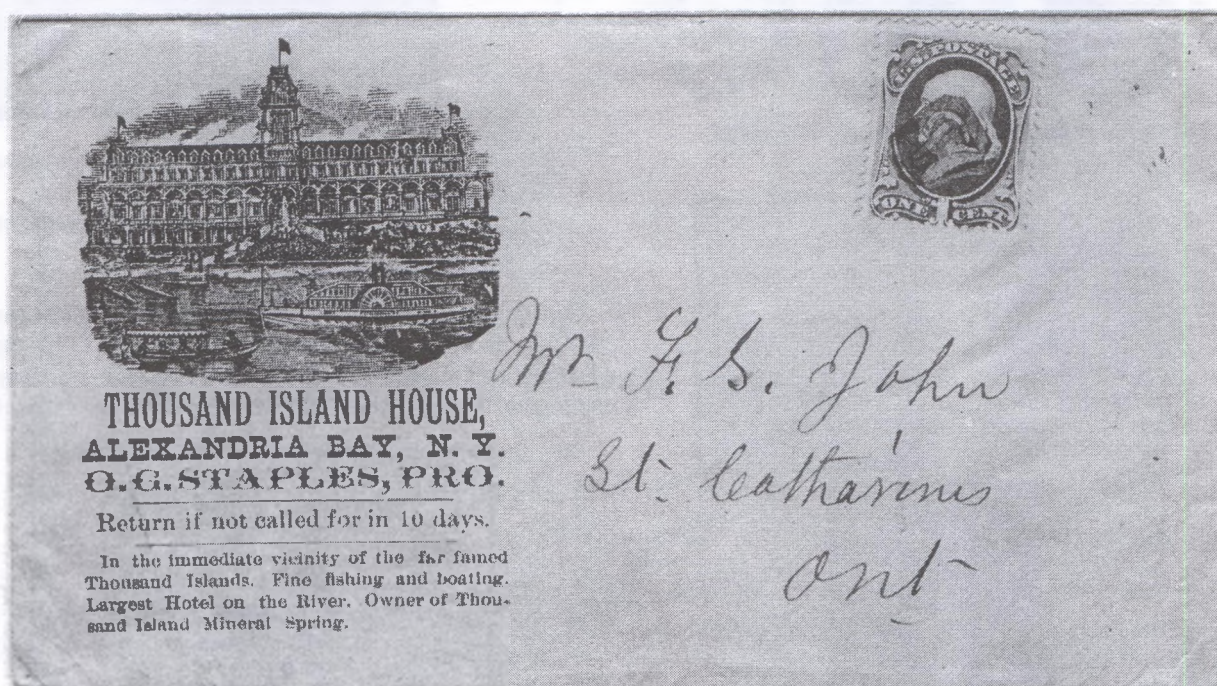 U.S. POSTAGE
ONE CENT
THOUSAND ISLAND HOUSE,
ALEXANDRIA BAY, N. Y.
O. G. STAPLES, PRO.
Return if not called for in 10 days.
In the immediate vicinity of the far famed
Thousand Islands. Fine fishing and boating.
Largest Hotel on the River. Owner of Thou-
sand Island Mineral Spring.
Mr F. S. John
St. Catharines
Ont